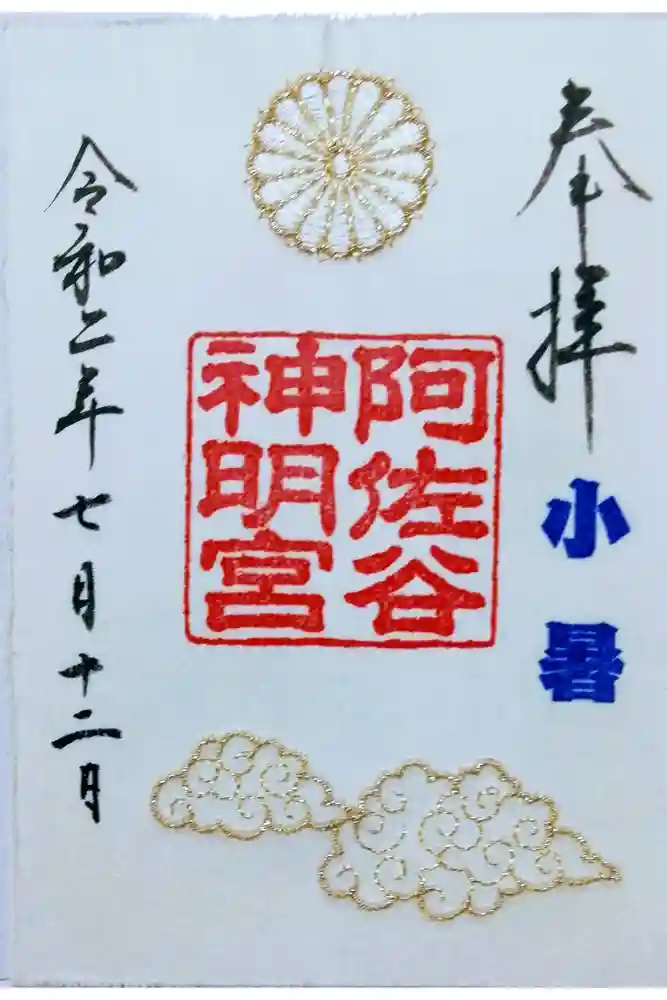 奉拝
小暑
阿佐谷
神明宮
令和二年七月十二日